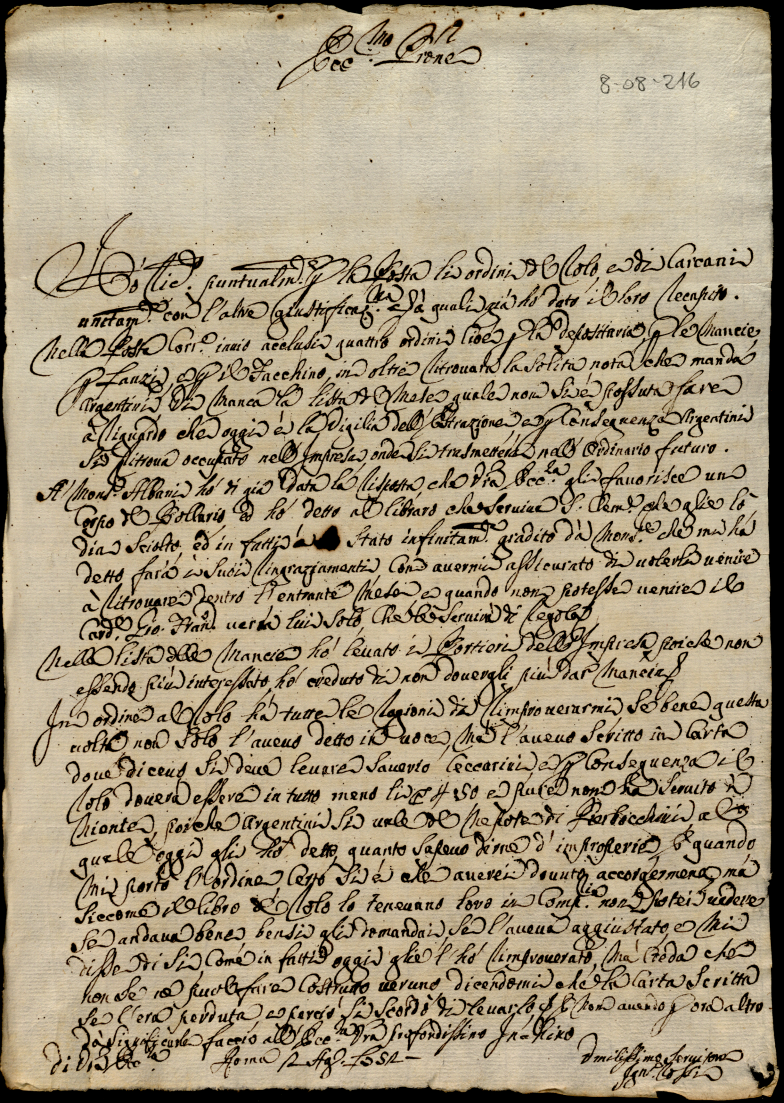 Ecc.mo Prone
8-08-216
Hò Ric.o puntualm.te p la Posta li ordini del Rolo, e di Carcani
unitam.te con l'altre giustificaz.ni à quali già hò dato il loro Recapito.
Nella Posta Corr.te invio acclusi quattro ordini cioè p la depositaria p le Mancie
p Lanzi, e p il Facchino, in oltre ritrovarà la solita nota che manda
Argentini Di Manca la lista del Mese quale non si è possuta fare
à riguardo che oggi è la Vigilia dell'Estrazione e p Consequenza Argentini
si ritrova occupato nell'Impresa onde si trasmetterà nall'Ordinario futuro.
A Mons.r Albani hò di già data la risposta, che V'ra Ecc.za gli favorisce un
Corpo del Bollario ed hò detto al libraro che serviva S. Clem.te che glie lo
dia sciolto, ed in fatti è stato infinitam.te gradito dà Mons.re che mi hà
detto farà i suoi ringraziamenti con avermi assicurato di volerla venire
à ritrovare dentro l'entrante Mese e quando non potesse venire il
Card.l Gio. Fran.co verrà lui solo che le servirà di regola
Nella lista delle Mancie hò levato i Portieri dell'Impresa poiche non
essendo più interessato hò creduto di non dovergli più dar Mancia
In ordine al Rolo hà tutte le ragioni di rimproverarmi se bene questa
volta non solo l'avevo detto in voce, Mà l'avevo scritto in Carta
dove dicevo si deve levare Saverio Ceccarini e p Consequenza il
Rolo doverà essere in tutto meno li 4 50 e pure non hà servito à
Niente, poiche Argentini si vale del Nepote di Pierbecchini al
quale oggi gli hò detto quanto sapevo dirne d'improperio p quando
Mi portò l'ordine Certo si è che averei dovuto accorgermene, mà
siccome il libro del Rolo lo tenevano loro in Comp.tia non potei vedere
se andava bene bensì gli domandai se l'aveva aggiustato, e Mi
disse di sì come in fatti oggi glie l'hò rimproverato, Mà Creda che
non se ne può fare costrutto veruno dicendomi che la Carta scritta
se l'era perduta e perciò si scordò di levarlo, e non avendo p ora altro
dà significarle faccio all'Ecc.za V'ra profondissimo Inchino
di V'ra Ecc.za Roma
Umilissimo Servitore